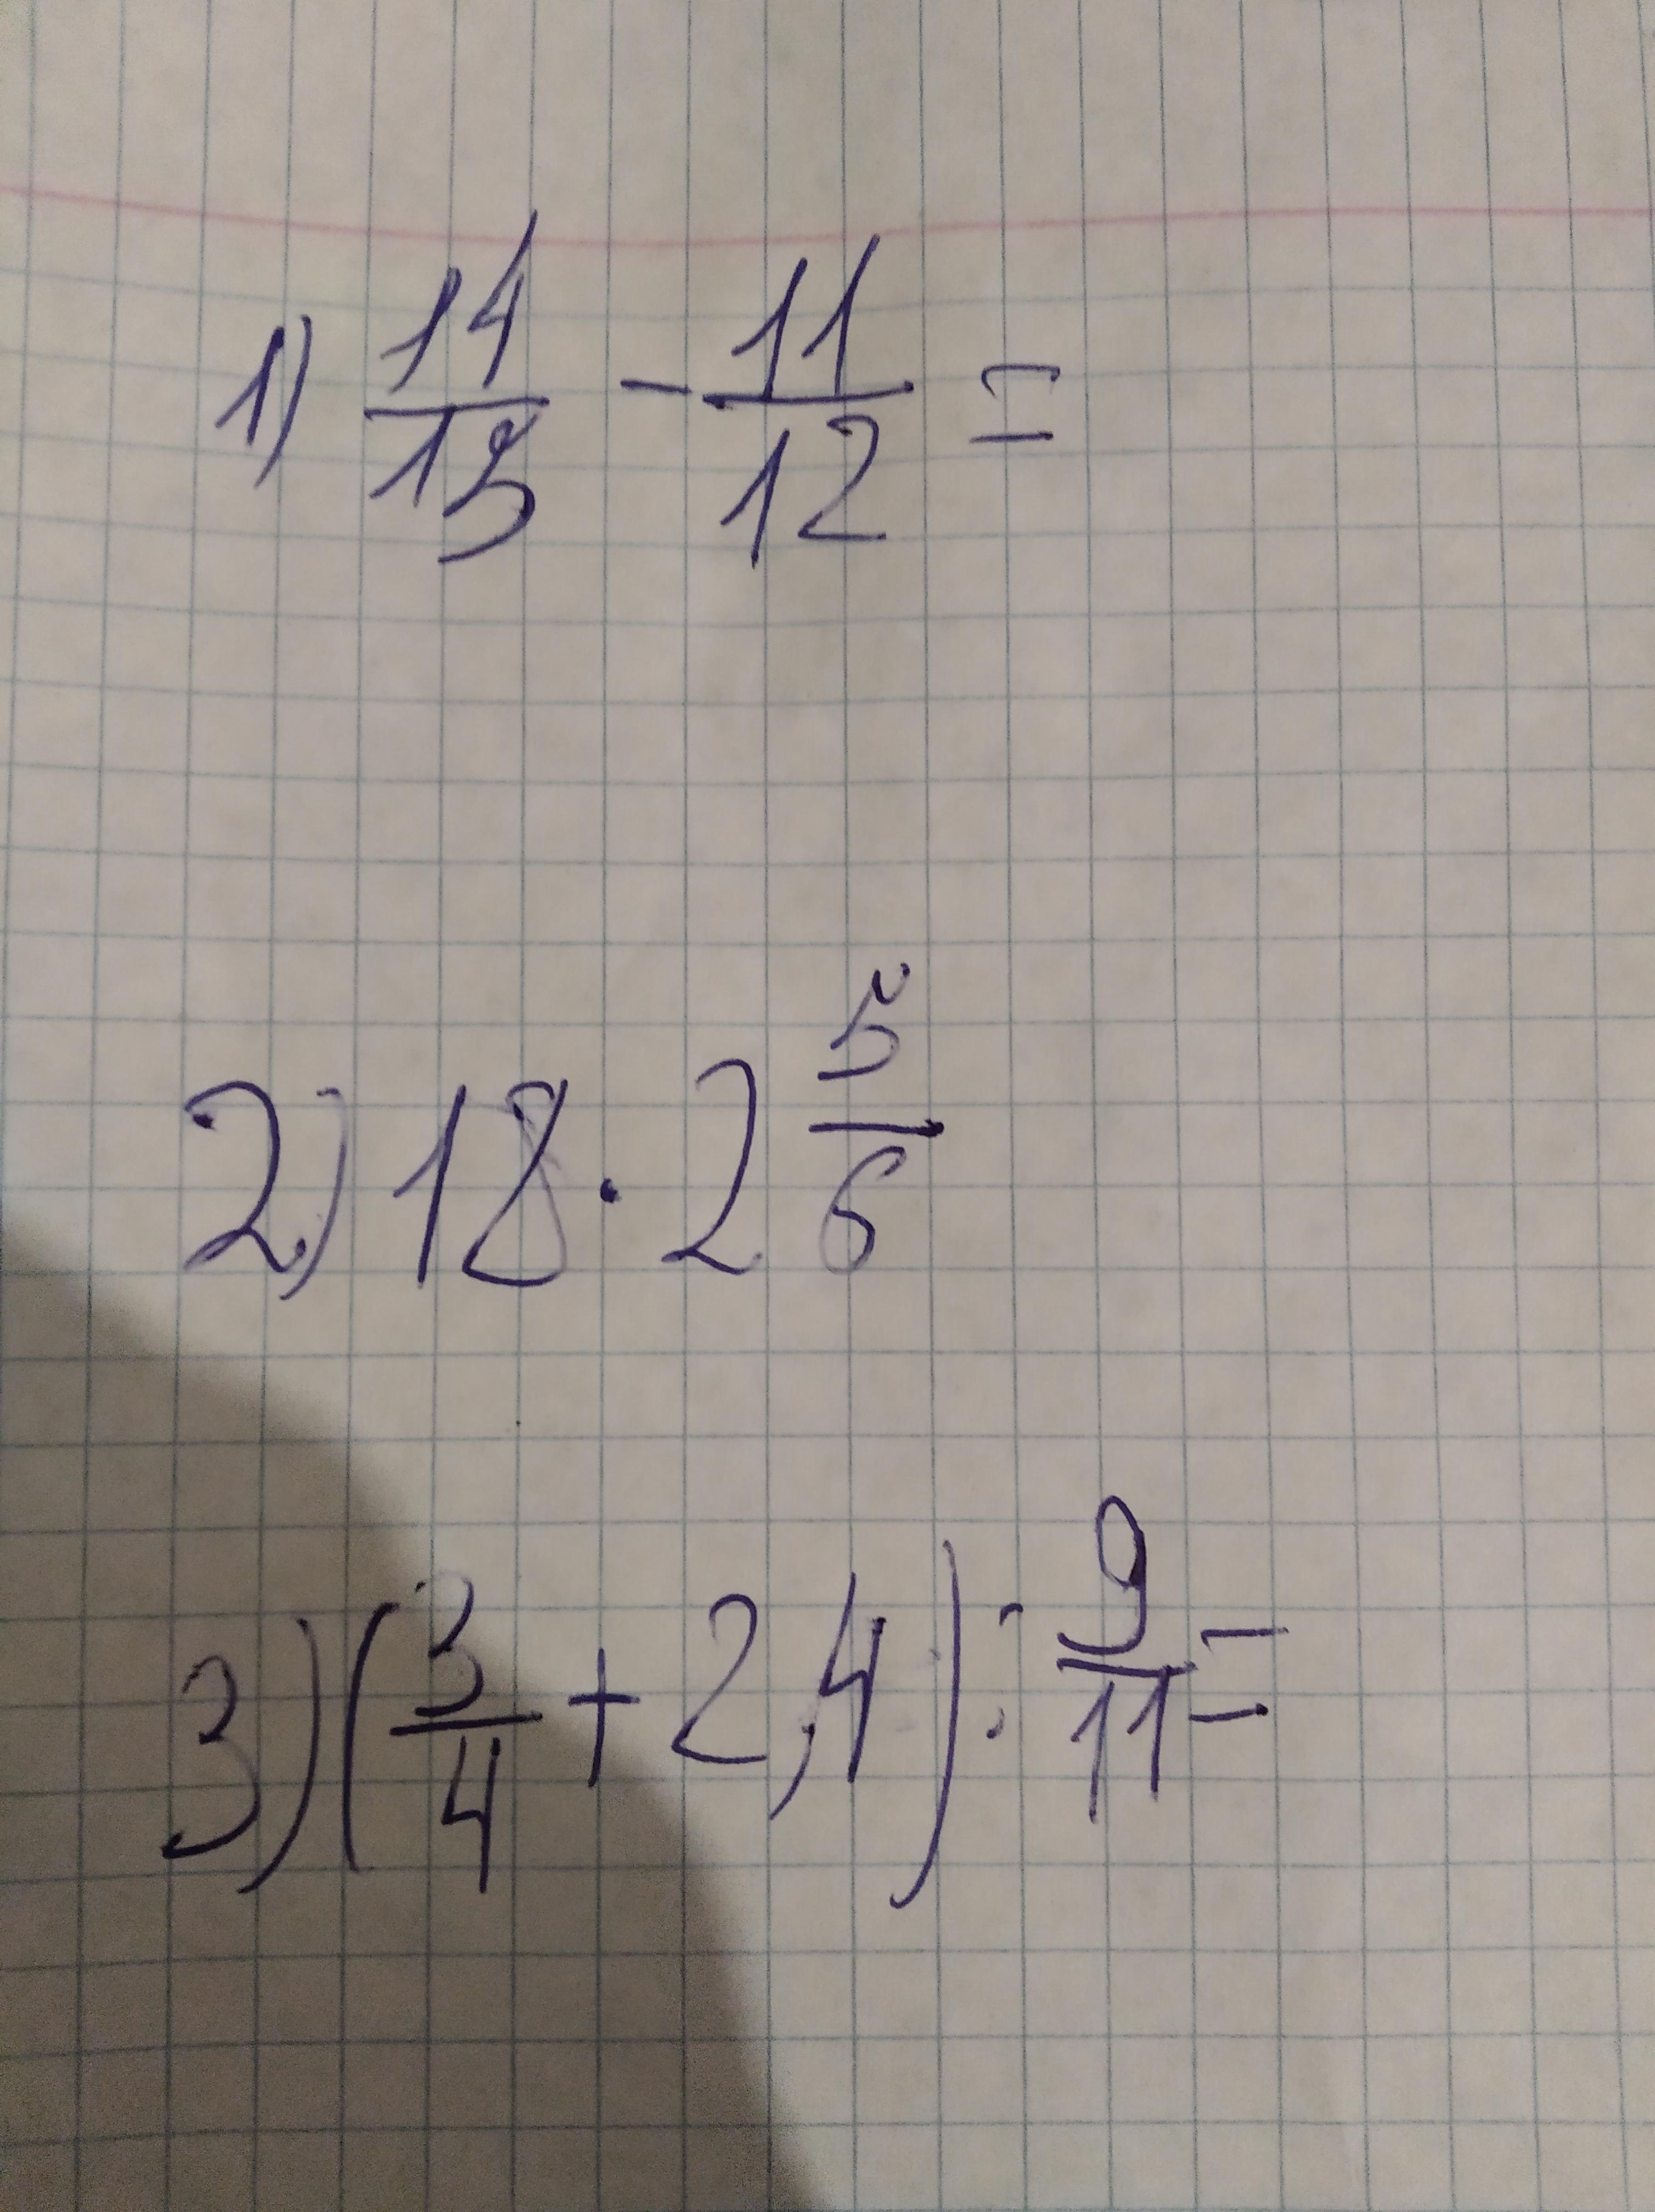 1) 14/15 - 11/12 =
2) 18 · 2 5/6
3) (3/4 + 2,4) : 9/11 =